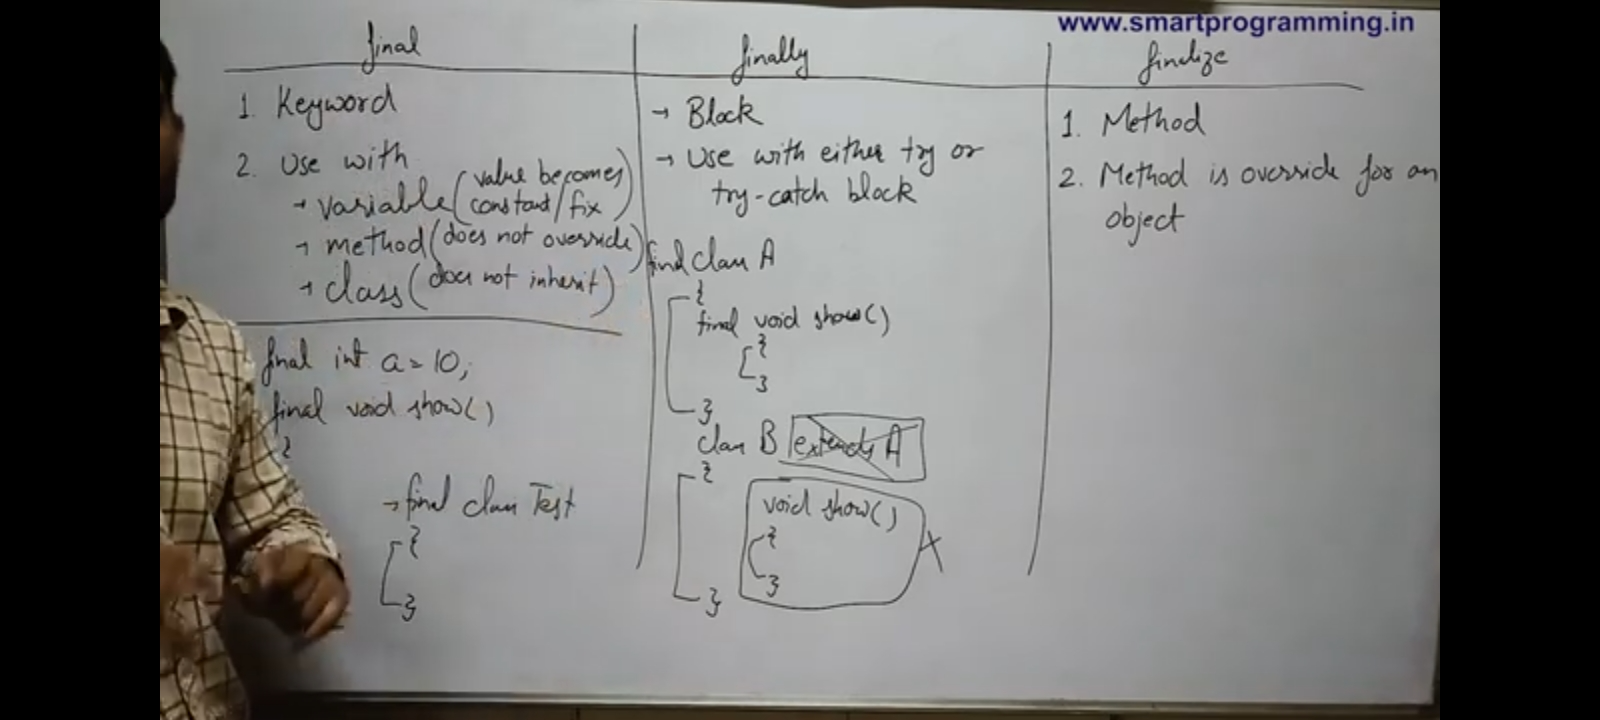 www.smartprogramming.in
final
1. Keyword
2. Use with
→ variable (value becomes
constant/fix)
→ method (does not override)
→ class (does not inherit)
final int a = 10;
final void show()
{
→ final class Test
{
}
finally
→ Block
→ Use with either try or
try-catch block
final class A
{
final void show()
{
}
}
class B extends A
{
void show()
{
}
}
X
finalize
1. Method
2. Method is override for an
object